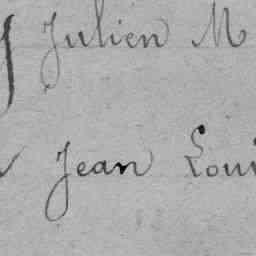 Julien M
Jean Loui